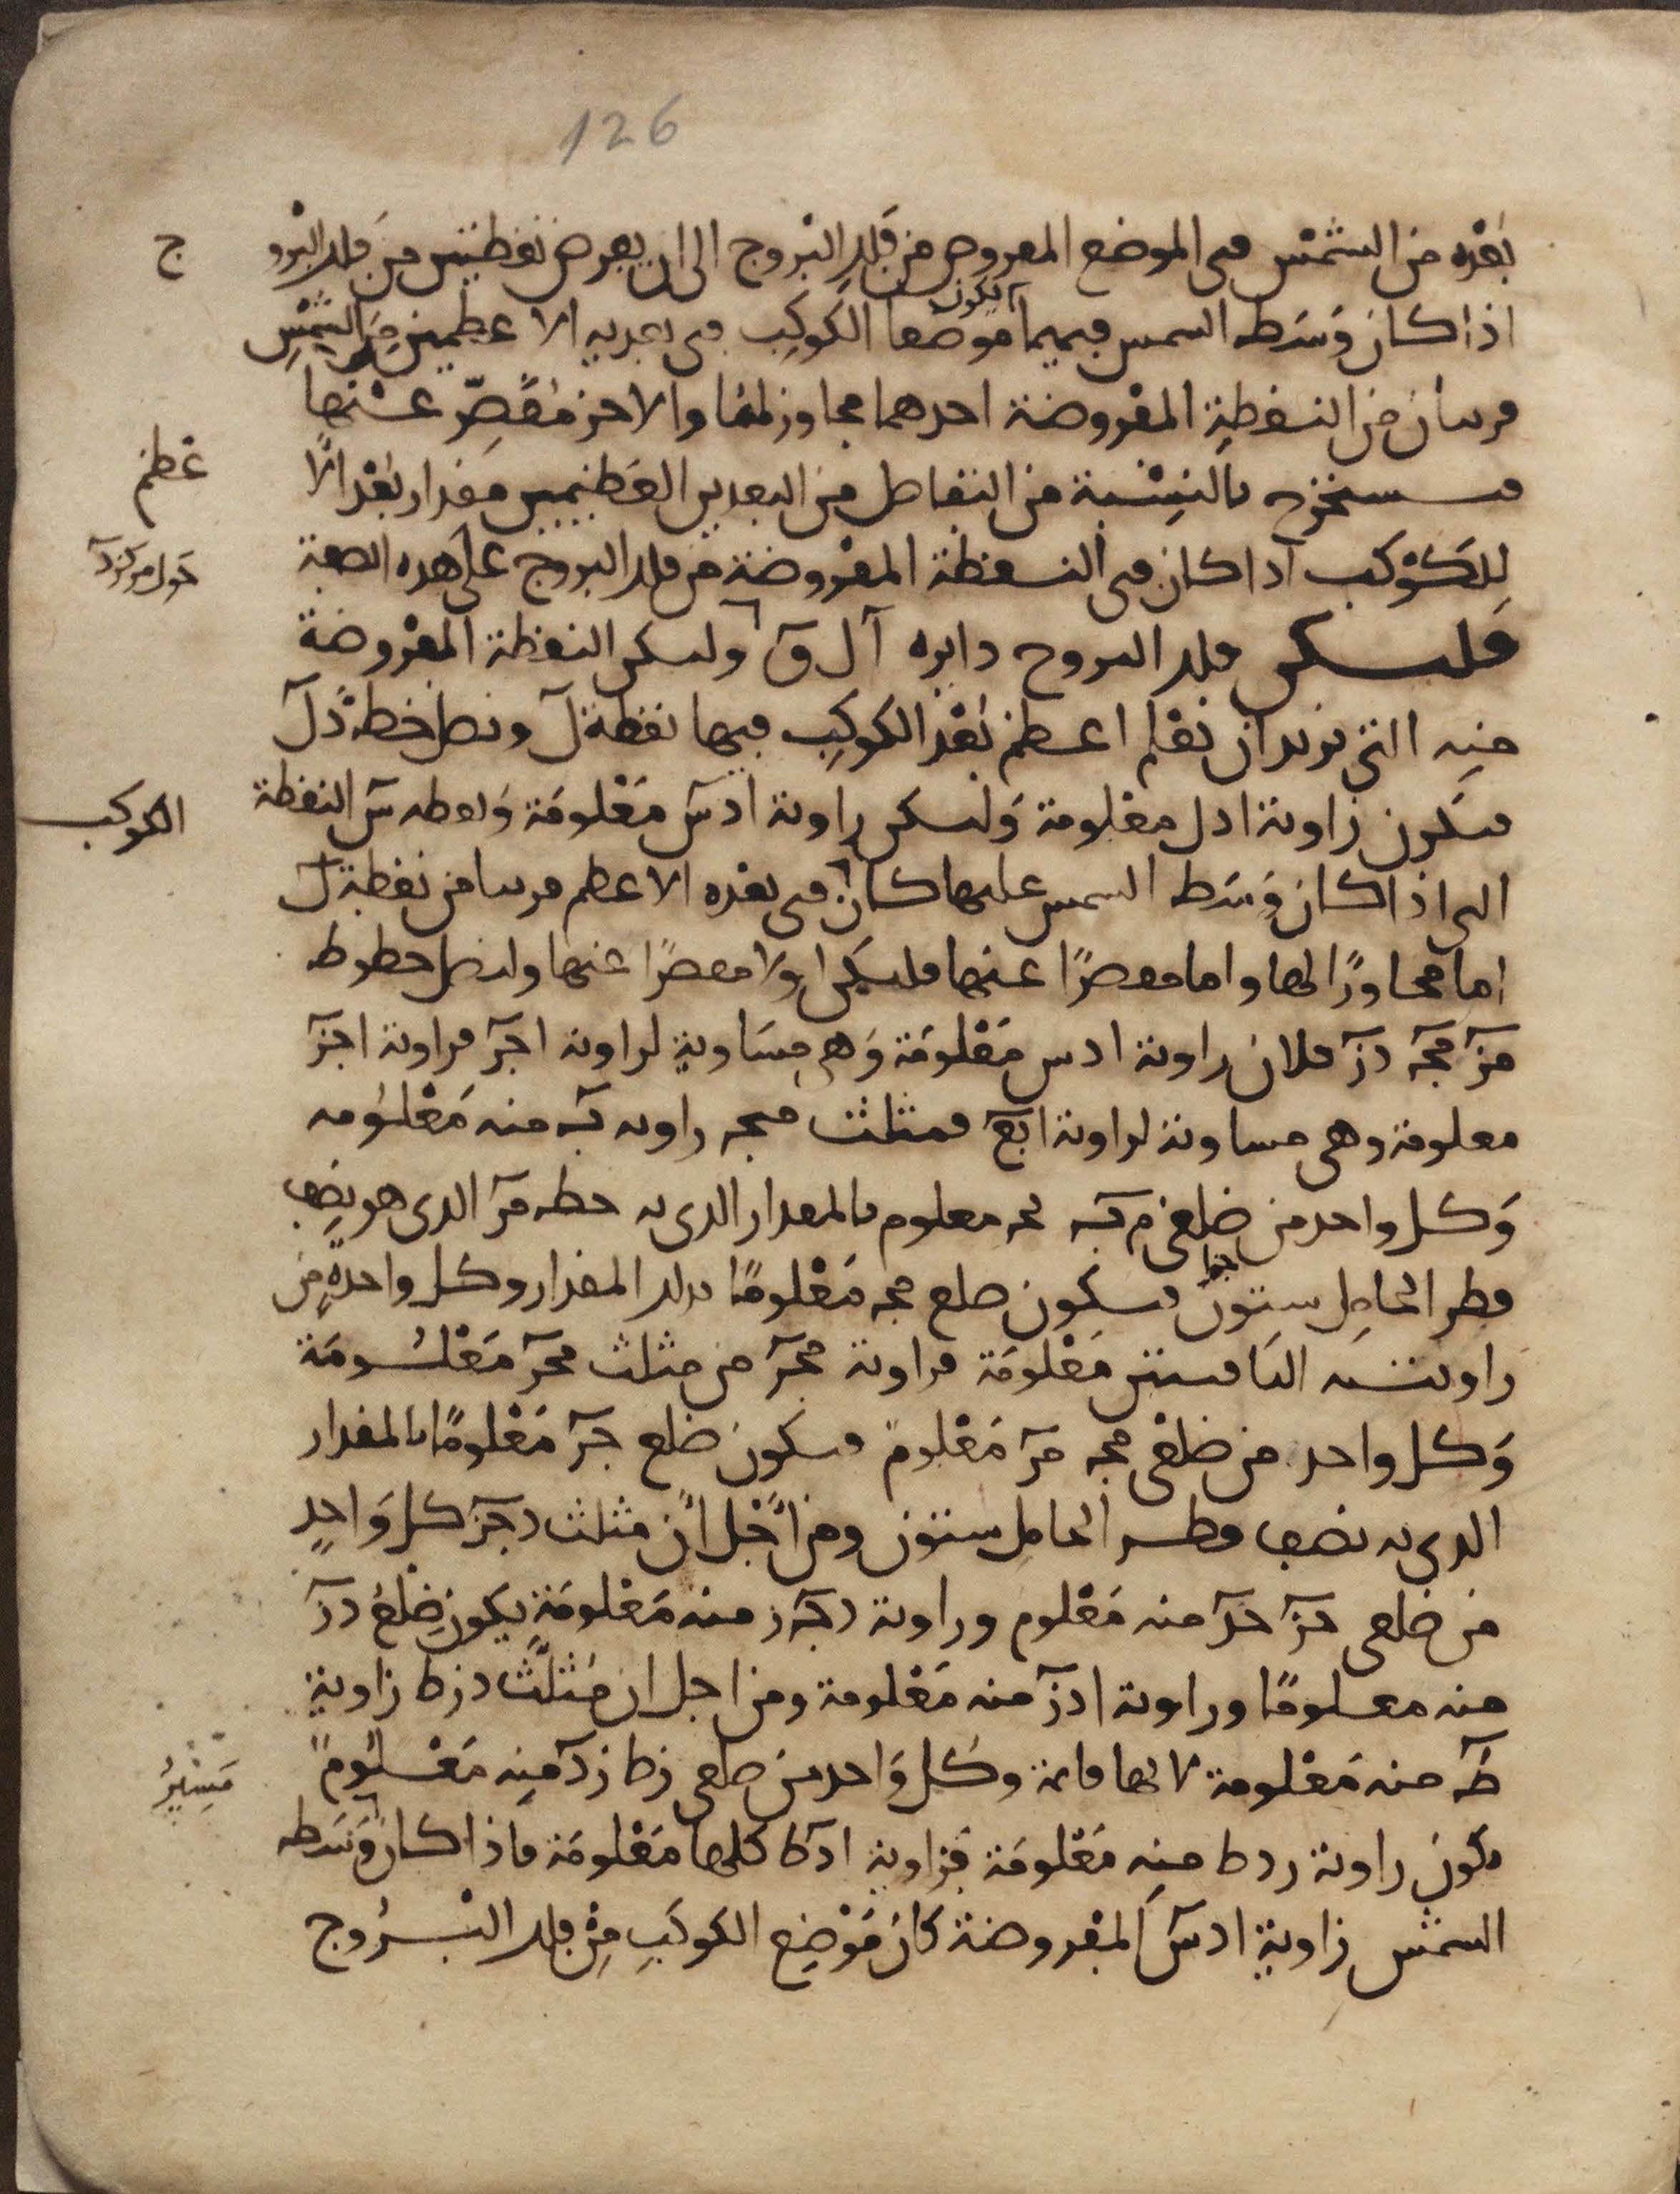 126
بعده من الشمس في الموضع المفروض من فلك البروج الى ان يعرض نقطتين من فلك البرو
ج
اذا كان وسط الشمس فيهما يكون موضعا الكوكب في بعديه الاعظمين من الشمس
قريبان من النقطة المفروضة احدهما مجاوز لها والاخر مقصر عنها
فيستخرج بالنسبة من التفاضل من البعدين العظيمين مقدار بعد الا
عظم
للكوكب اذا كان في النقطة المفروضة من فلك البروج على هذه الصفة
حول مركز د
فليكن فلك البروج دايرة ا ل ق وليكن النقطة المفروضة
منه التي نريد ان نعلم اعظم بعد الكوكب فيها نقطة ل ونصل خط د ل
فيكون زاوية ادل معلومة وليكن زاوية ادس معلومة ونقطه س النقطة
التي اذا كان وسط الشمس عليها كان في بعده الاعظم قريبا من نقطة ل
الكوكب
اما مجاوزا لها واما مقصرا عنها فليكن اولا مقصرا عنها ولنصل خطوط
مز مجه دز فلان زاوية ادس معلومة وهي مساوية لزاوية اجز فزاوية اجز
معلومة وهي مساوية لزاوية ابع فمثلث مبجه زاويه به منه معلومه
وكل واحد من ضلعي م به بجه معلوم بالمقدار الذي به خطه مز الذي هو نصف
قطر الحامل ستون جزا فيكون ضلع مجه معلوما بذلك المقدار وكل واحدة من
زاويتيه الباقيتين معلومة فزاوية مجز من مثلث مجز معلومة
وكل واحد من ضلعي مجه مز معلوم فيكون ضلع جز معلوما بالمقدار
الذي به نصف قطر الحامل ستون ومن اجل ان مثلث دجز كل واحد
من ضلعي جز جد منه معلوم وزاوية دجه ز منه معلومة يكون ضلع دز
منه معلوما وزاوية ادز منه معلومة ومن اجل ان مثلث دزط زاوية
طه منه معلومة لانها قايمة وكل واحد من ضلعي زط زد منه معلوم
تكون زاوية زدط منه معلومة فزاوية ادط كلها معلومة فاذا كان وسط
مسير
الشمس زاوية ادس المفروضة كان موضع الكوكب من فلك البروج